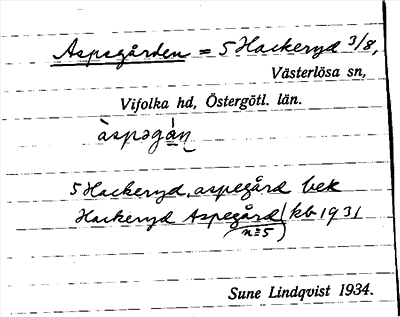 Aspegården = 5 Hackeryd 3/8,
Västerlösa sn,
Vifolka hd, Östergötl. län.
àspəgán
5 Hackeryd, aspegård bek
Hackeryd Aspegård (kb 1931
n=5)
Sune Lindqvist 1934.